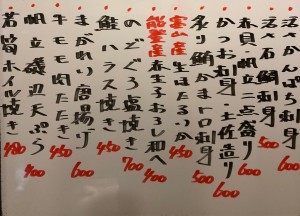 活さざえ刺身 500
活石鯛刺身 600
赤貝・帆立二点盛り 600
かつお刺身・土佐造り 600
炙り鮪かまトロ刺身 500
富山産 生ほたるいか 450
能登産 赤生子おろし和へ 400
のどぐろ塩焼き 700
鮭ハラス焼き 450
まがれい唐揚げ 600
牛モモ肉たたき 450
帆立磯辺天ぷら 400
若筍ホイル焼き 480